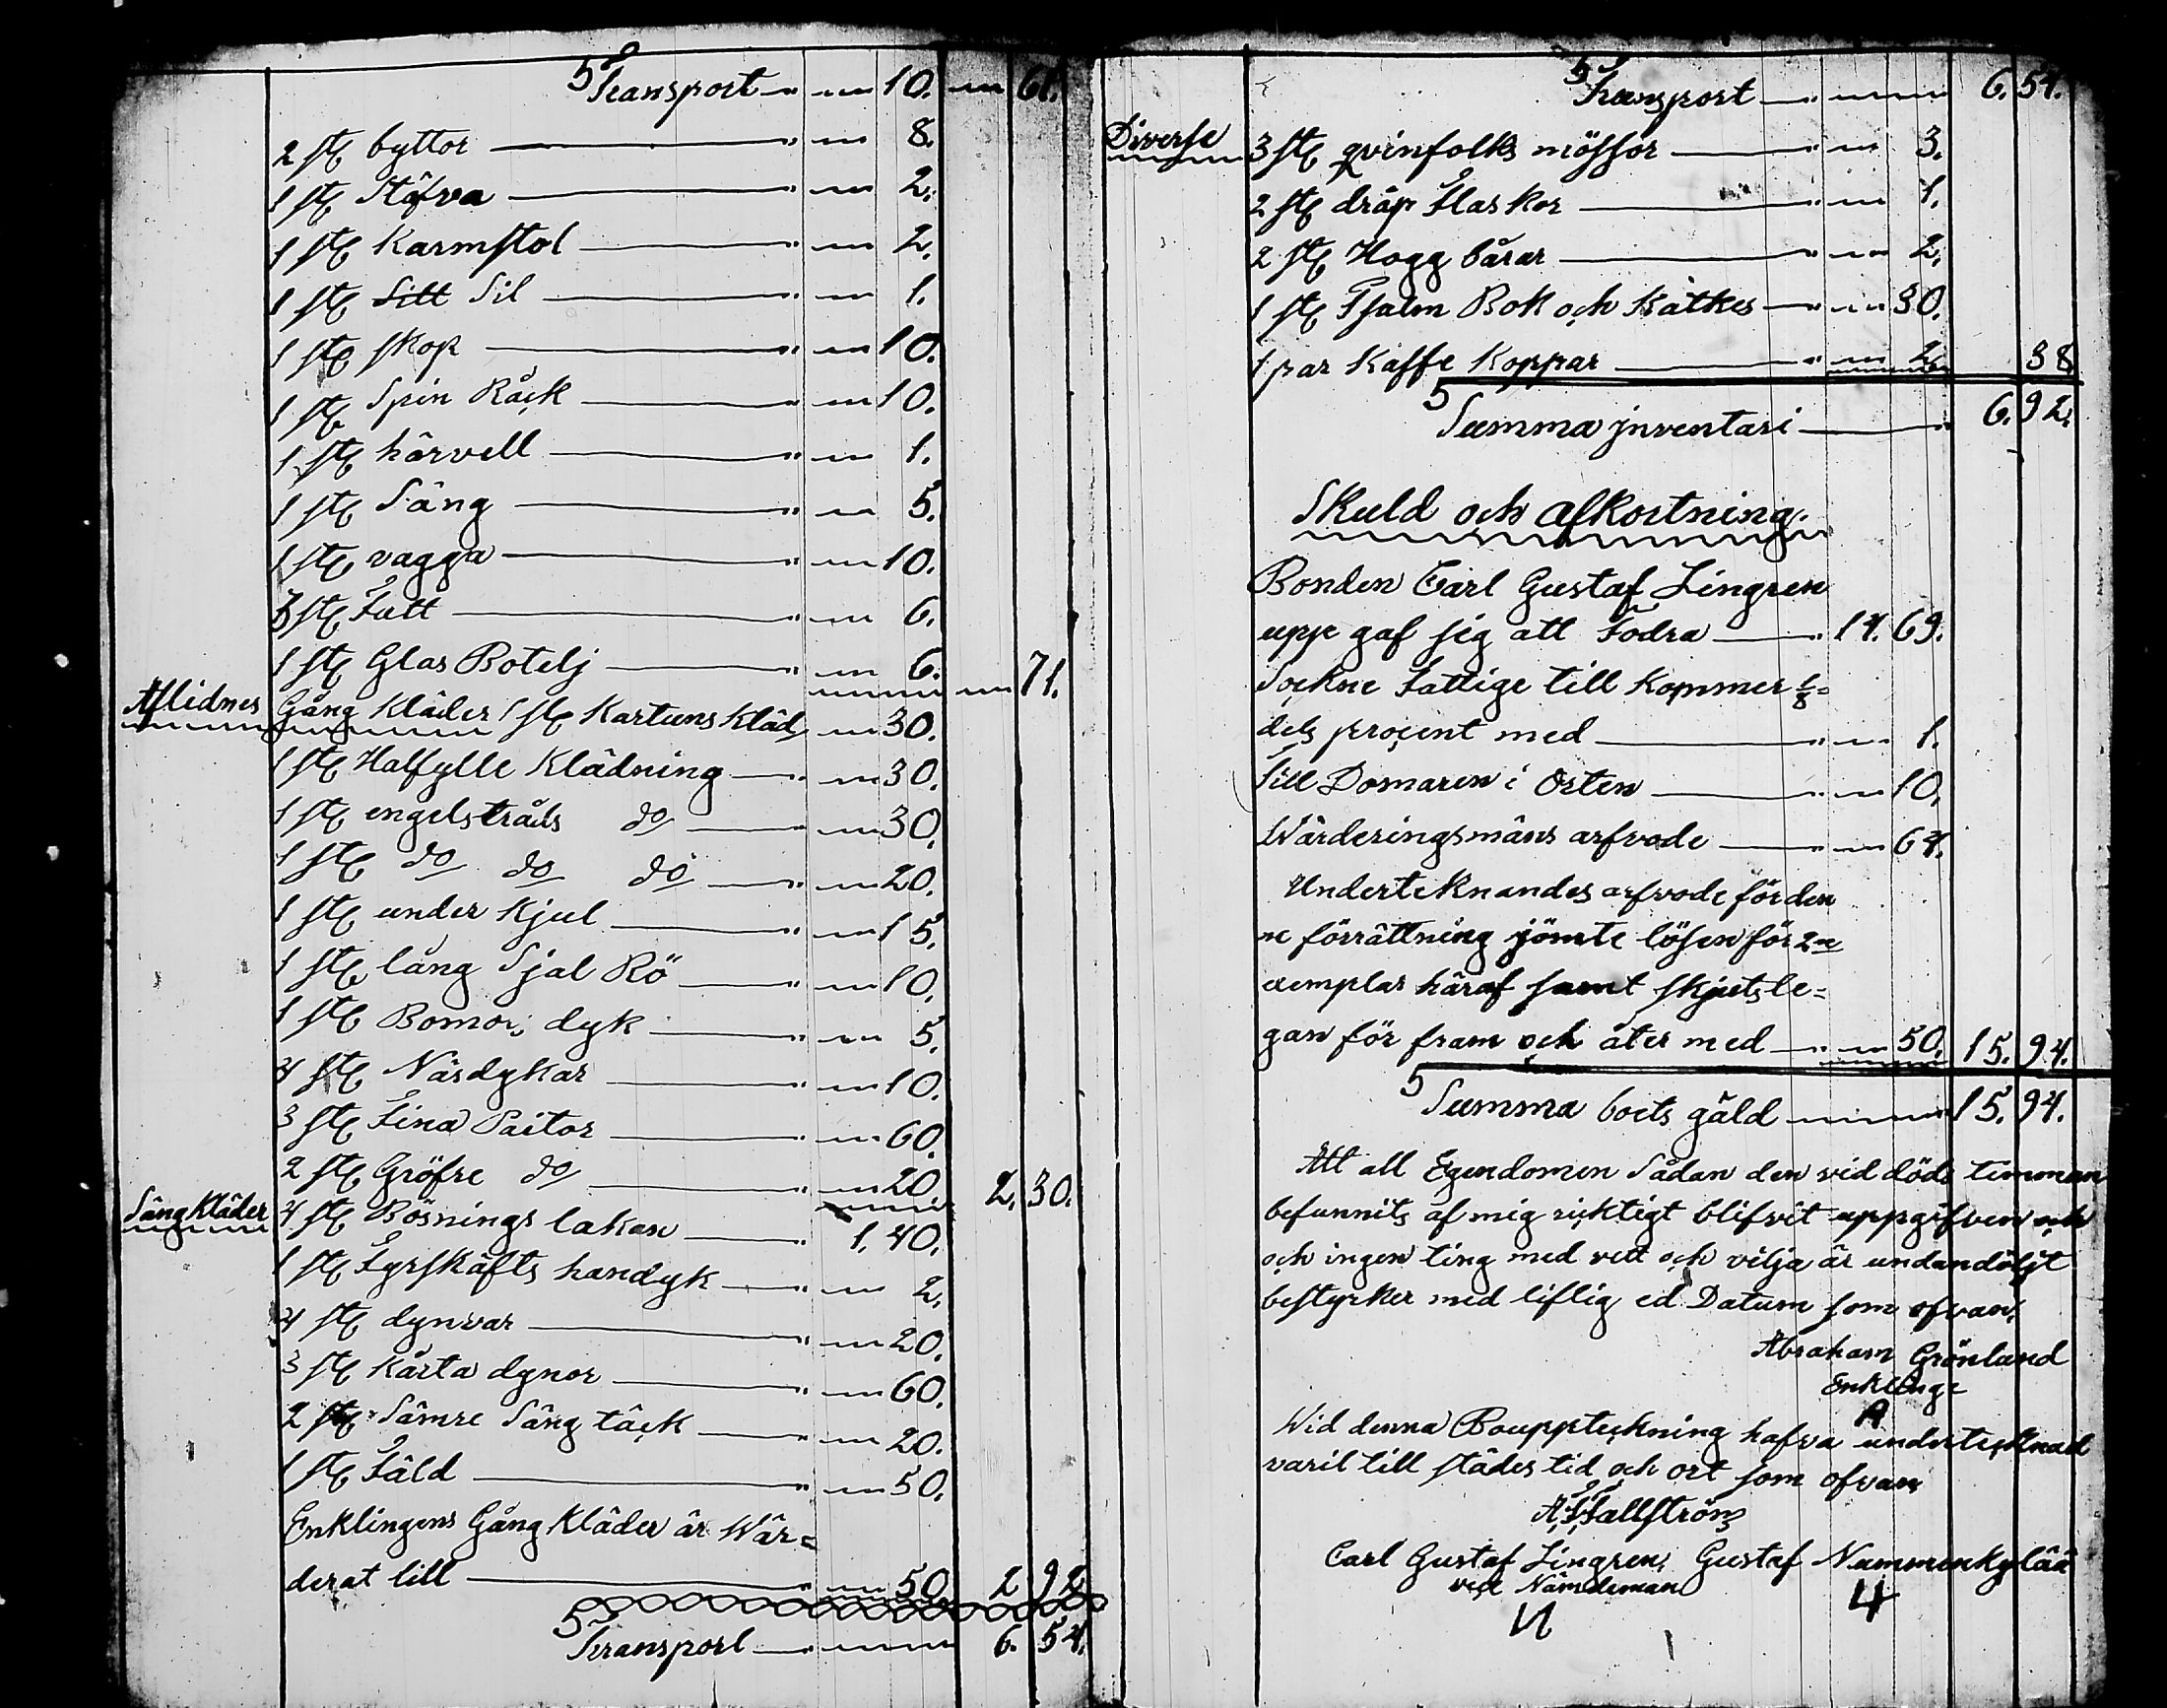 Transport — " 10. " 61.
2 st. byttor — " 8.
1 st. Stäfva — " 2.
1 st. Karmstol — " 2.
1 st. Sitt Sil — " 1.
1 st. skop — " 10.
1 st. Spin Råck — " 10.
1 st. härvell — " 1.
1 st. Säng — " 5.
1 st. vagga — " 10.
st. Fatt — " 6.
1 st. Glas Botelj — " 6. " 71.
Aflidnes Gång Kläder 1 st. Kartuns Kläd " 30.
1 st. Halfylle Klädning — " 30.
1 st. engelstråds do — " 30.
1 st. do do do — " 20.
1 st. under Kjul — " 15.
1 st. lång Sjal Rö — " 10.
1 st. Bomor, dyk — " 5.
4 st. Näsdykar — " 10.
3 st. Fina Paitor — " 60.
2 st. Gröfre do — " 20. 2. 30.
Sängkläder 4 st. Bösnings lakan — 1. 40.
1 st. Fyrskäfts handyk — " 2.
4 st. dynvar — " 20.
3 st. Kårta dynor — " 60.
2 st. Sämre Säng täck — " 20.
1 st. Fäld — " 50.
Enklingens Gång Kläder är Wär=
derat till — " 50. 2 92
Transport — " 6. 54.
Transport — " 6. 54.
Diverse 3 st. qvinfolks mössor — " 3.
2 st. dråp Flaskor — " 1.
2 st. Hogg bårar — " 2.
1 st. Psalm Bok och Kätkes — " 30.
1 par Kaffe Koppar — " 2. 38
Summa jnventari — 6. 92.
Skuld och afkortning.
Bonden Carl Gustaf Lingren
uppe gaf sig att Fodra — 14. 69.
Sockne Fattige till Kommer 1/8=
dels procent med — " 1.
Till Domaren i Orten — " 10.
Wärderingsmäns arfvode — " 64.
Underteknandes arfvode för den
ne förrättning jömte lösen för 2ne
exemplar häraf samt skjutsle=
gan för fram och åter med — " 50. 15. 94.
Summa borts gäld — 15. 94.
Att all Egendomen Sådan den vid döds timman
befunnits af mig ricktigt blifvit uppgifven och
och ingen ting med vett och vilja är undandöljt
bestyrker med liflig ed. Datum som ofvan.
Abraham Grönlund
Enklinge
A
Wid denna Bouppteckning hafva undertecknad
varit till städes tid och ort som ofvan
A, F, Fallström
Carl Gustaf Lingren, Gustaf Nummenkylää
vice Nämdeman